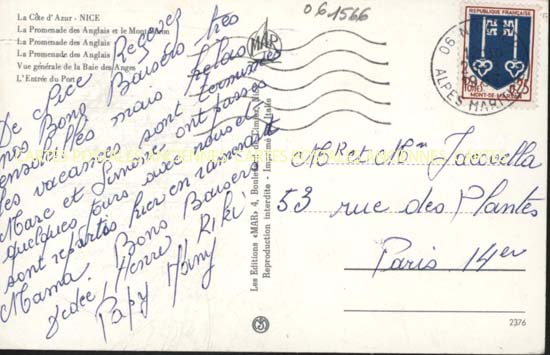 La Côte d'Azur - NICE
La Promenade des Anglais et le Mont
La Promenade des Anglais
La Promenade des Anglais
Vue générale de la Baie des Anges
L'Entrée du Port
De Nice Recevez
nos Bons Baisers très
ensoleillés mais hélas
les vacances sont terminées
Marc et Simone ont passés
quelques jours avec nous et
sont repartis hier en ramenant
Mama Bons Baisers
Dédée, Henri Riki
Papy Mamy
Les Editions «MAR» 4, Boulevard de Cimiez, Nice
Reproduction interdite - Imprimé en Italie
MAR
061566
06 N
ALPES MARIT
REPUBLIQUE FRANÇAISE
POSTES
0,25
MONT-DE-MARSAN
Mr et Mm Jacovella
53 rue des Plantes
Paris 14er
2376